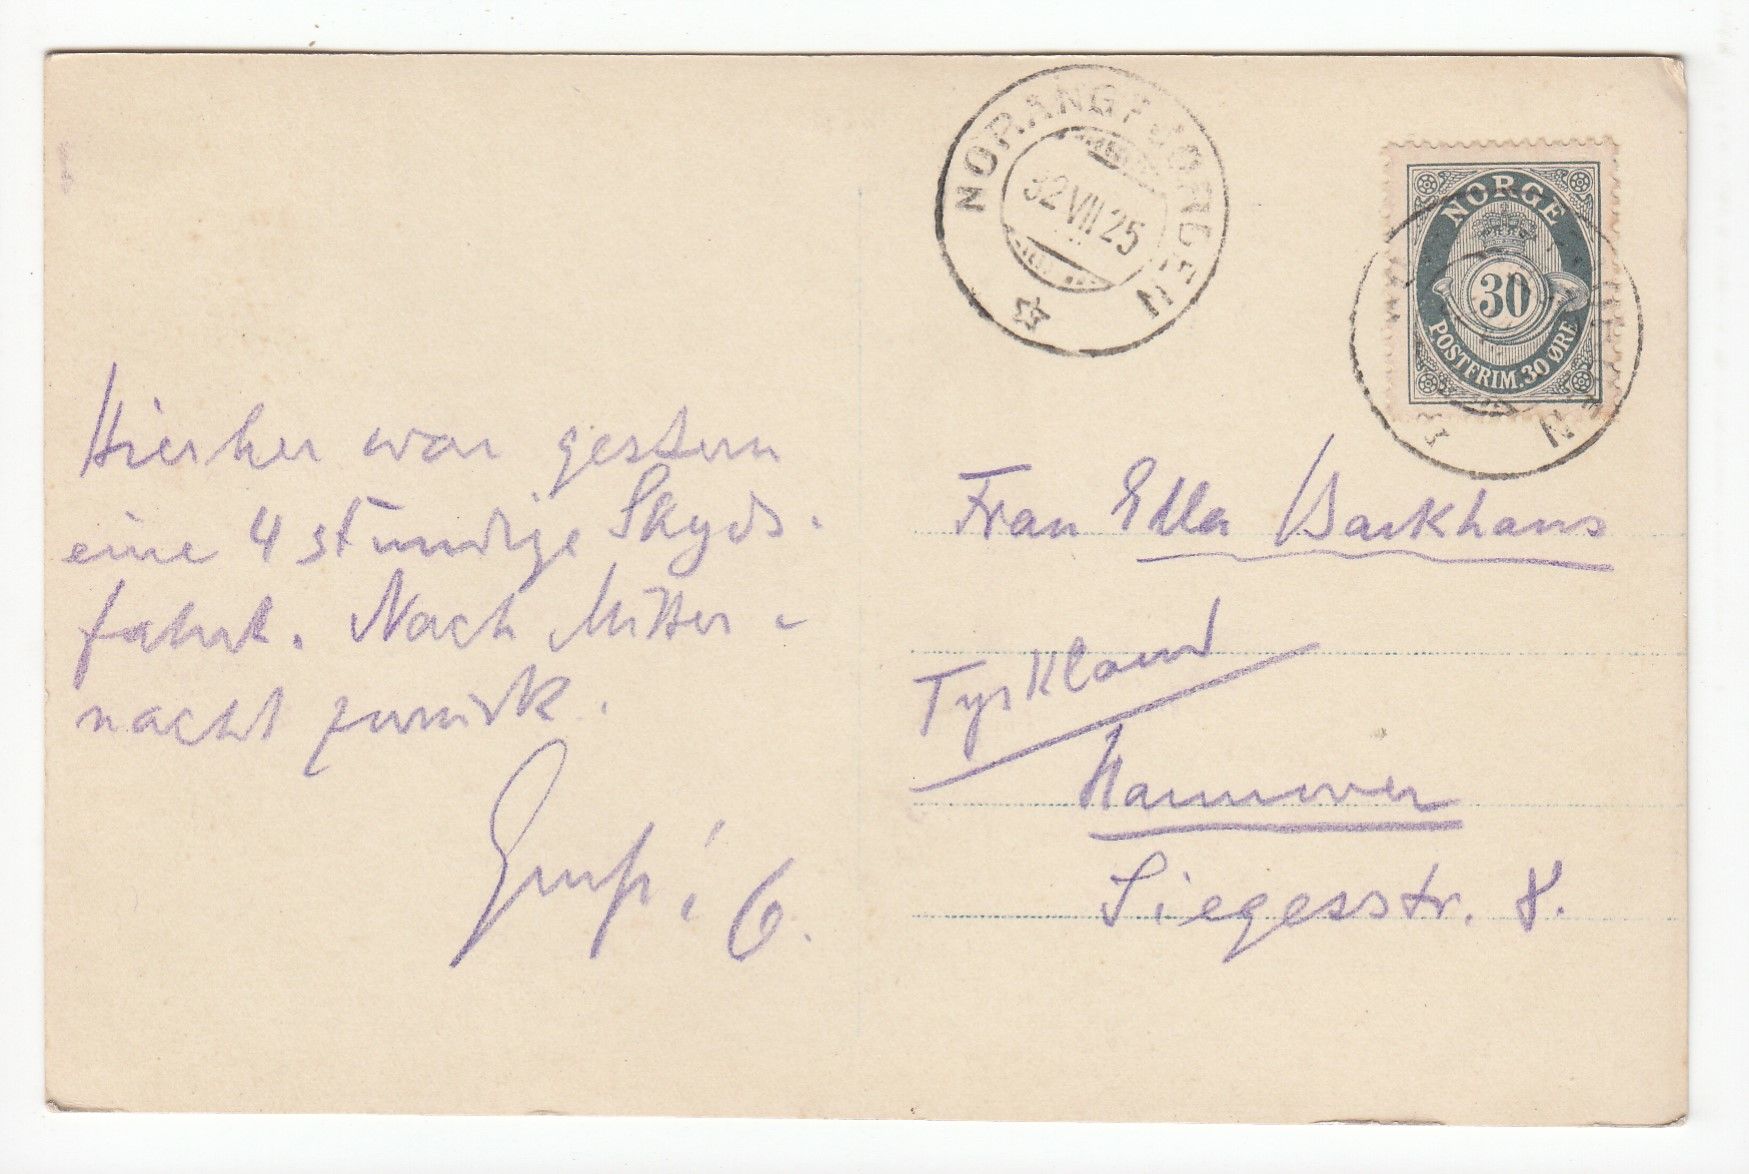 NORANGFJORDEN
VII 25
NORGE
30
POSTFRIM. 30 ØRE
Hierher war gestern
eine 4 stündige Skyds-
fahrt. Nach Mitter-
nacht zurück.
Frau Ella Barkhaus
Tyskland
Hannover
Siegesstr. 8.